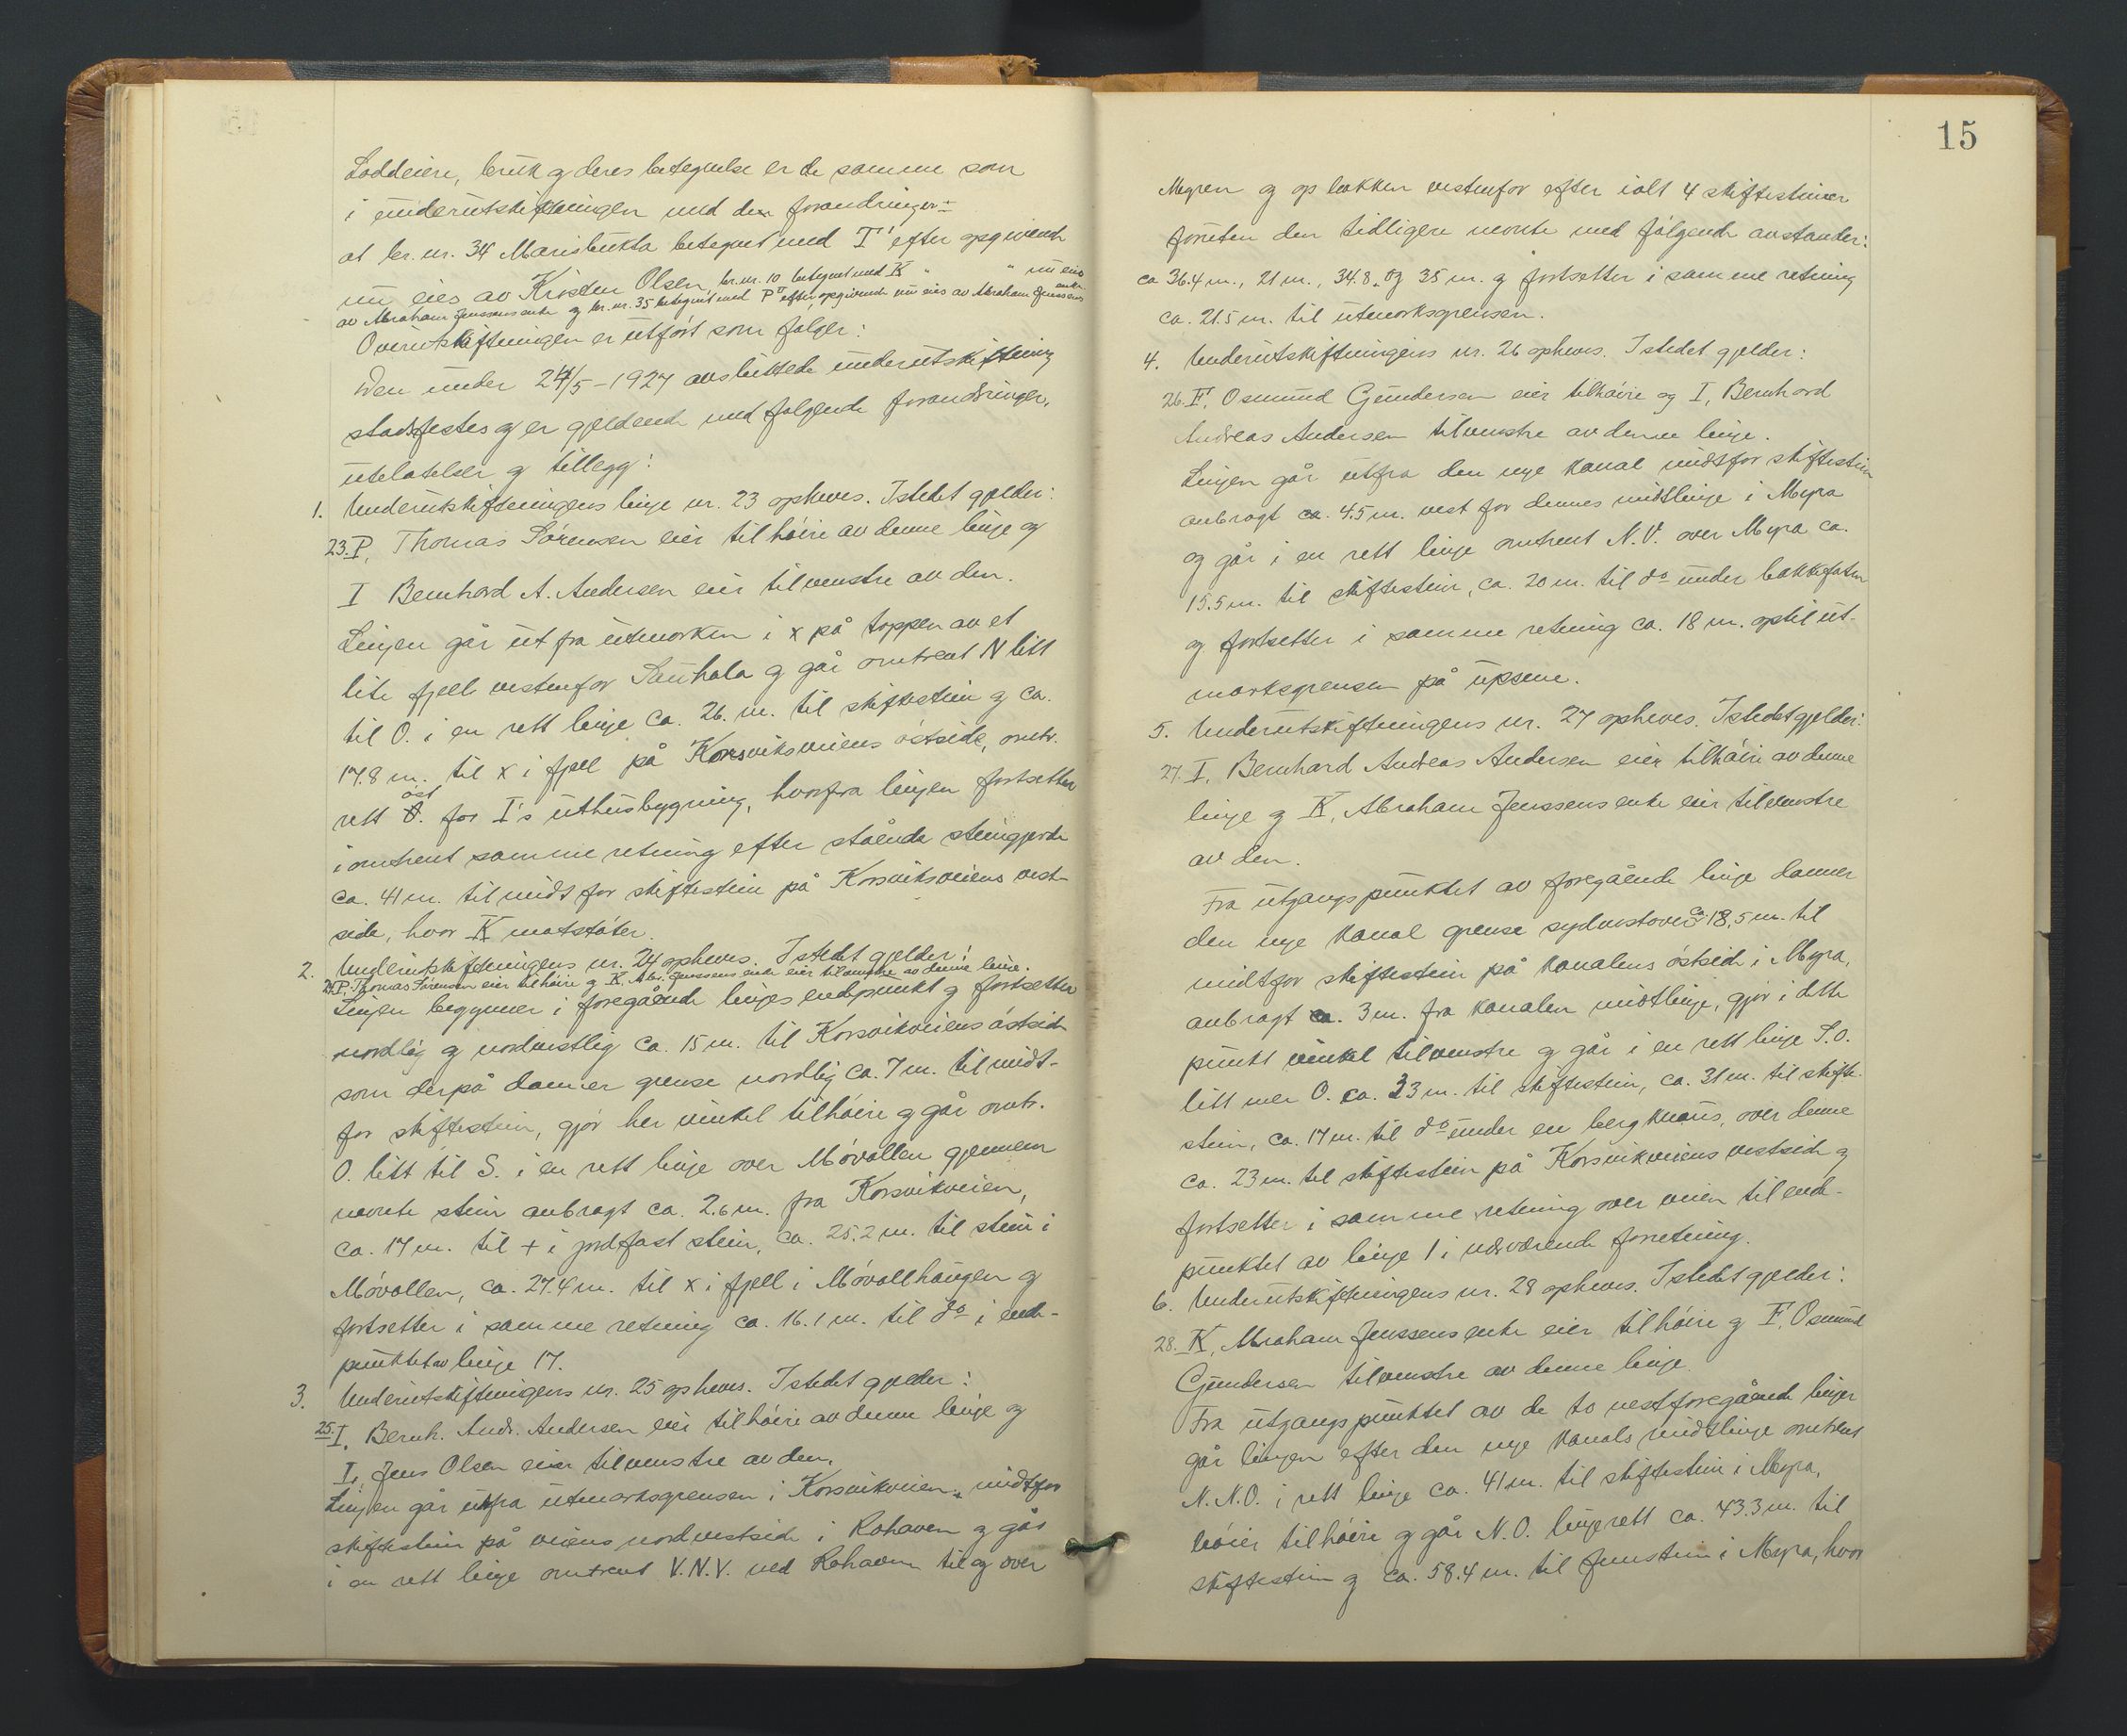 Loddeiere, bruk og deres betegnelse er de samme som
i underutskiftningen med den forandring er:
at br. nr. 34 Marisbukta betegnet med T' efter opgivende
nu eies av Kristen Olsen, br. nr. 10 betegnet med K " " nu eies
av Abraham Jenssens enke og br. nr. 35 betegnet med P" efter opgivende nu eies av Abraham Jenssens enke.
Overutskiftningen er utført som følger:
Den under 24/5-1927 avsluttede underutskiftning
stadsfestes og er gjeldende med følgende forandringer,
utelatelser og tillegg:
1. Underutskiftningens linje nr. 23 opheves. Istedet gjelder:
23. P, Thomas Sørensen eier tilhøire av denne linje og
I Bernhard A. Andersen eier tilvenstre av den.
Linjen går ut fra utmarken i x på toppen av et
lite fjell vestenfor Sauhala og går omtrent N litt
til O. i en rett linje ca. 26. m. til skiftestein og ca.
17.8 m. til x i fjell på Korsviksveiens østside, omtr.
rett øst for I's uthusbygning, hvorfra linjen fortsetter
i omtrent samme retning efter stående steingjerde
ca. 41 m. til midt for skiftestein på Korsviksveiens vest-
side, hvor K motstøter.
2. Underutskiftningens nr. 24 opheves. Istedet gjelder:
24. P. Thomas Sørensen eier tilhøire og K. Abr. Jenssens enke eier tilvenstre av denne linje.
Linjen begynner i foregående linjes endepunkt og fortsetter
nordlig og nordvestlig ca. 15 m. til Korsvikveiens østside
som derpå danner grense nordlig ca. 7 m. til midt-
for skiftestein, gjør her vinkel tilhøire og går omtr.
O. litt til S. i en rett linje over Møvollen gjennem
nevnte stein anbragt ca. 2.6 m. fra Korsvikveien,
ca. 17 m. til + i jordfast stein, ca. 25.2 m. til stein i
Møvollen, ca. 27.4 m. til x i fjell i Møvollhaugen og
fortsetter i samme retning ca. 16.1 m. til do i ende-
punktet av linje 17.
3. Underutskiftningens nr. 25 opheves. Istedet gjelder:
25. I, Bernh. Andr. Andersen eier tilhøire av denne linje og
L, Jens Olsen eier tilvenstre av den.
Linjen går utfra utmarksgrensen i Korsvikveien, midtfor
skiftestein på veiens nordvestside i Rohaven og går
i en rett linje omtrent V.N.V. ved Rohaven til og over
15
Myren og op bakken vestenfor efter ialt 4 skiftesteiner
foruten den tidligere nevnte med følgende avstander:
ca 36.4 m., 21 m., 34.8, og 35 m. og fortsetter i samme retning
ca. 21.5 m. til utmarksgrensen.
4. Underutskiftningens nr. 26 opheves. Istedet gjelder:
26. F, Osmund Gundersen eier tilhøire og I, Bernhard
Andreas Andersen tilvenstre av denne linje.
Linjen går utfra den nye kanal midtfor skiftestein
anbragt ca. 4.5 m. vest for dennes midtlinje i Myra
og går i en rett linje omtrent N.V. over Myra ca.
15.5 m. til skiftestein, ca. 20 m. til do under bakkefoten
og fortsetter i samme retning ca. 18 m. optil ut-
marksgrensen på upsene.
5. Underutskiftningens nr. 27 opheves. Istedet gjelder:
27. I, Bernhard Andreas Andersen eier tilhøire av denne
linje og K, Abraham Jenssens enke eier tilvenstre
av den.
Fra utgangspunktet av foregående linje danner
den nye kanal grense sydvestover ca. 18,5 m. til
midtfor skiftestein på kanalens østside i Myra,
anbragt ca. 3 m. fra kanalen midtlinje, gjør i dette
punkt vinkel tilvenstre og går i en rett linje S.O.
litt mer O. ca. 33 m. til skiftestein, ca. 31 m. til skifte-
stein, ca. 17 m. til do under en bergknaus, over denne
ca. 23 m. til skiftestein på Korsvikveiens vestside og
fortsetter i samme retning over veien til ende-
punktet av linje 1 i nærværende forretning.
6. Underutskiftningens nr. 28 opheves. Istedet gjelder:
28. K, Abraham Jenssens enke eier tilhøire og F, Osmund
Gundersen tilvenstre av denne linje.
Fra utgangspunktet av de to nestforegående linjer
går linjen efter den nye kanals midtlinje omtrent
N.N.O. i rett linje ca. 41 m. til skiftestein i Myra,
bøier tilhøire og går N.O. linjerett ca. 43.3 m. til
skiftestein og ca. 58.4 m. til stein i Myra, hvor